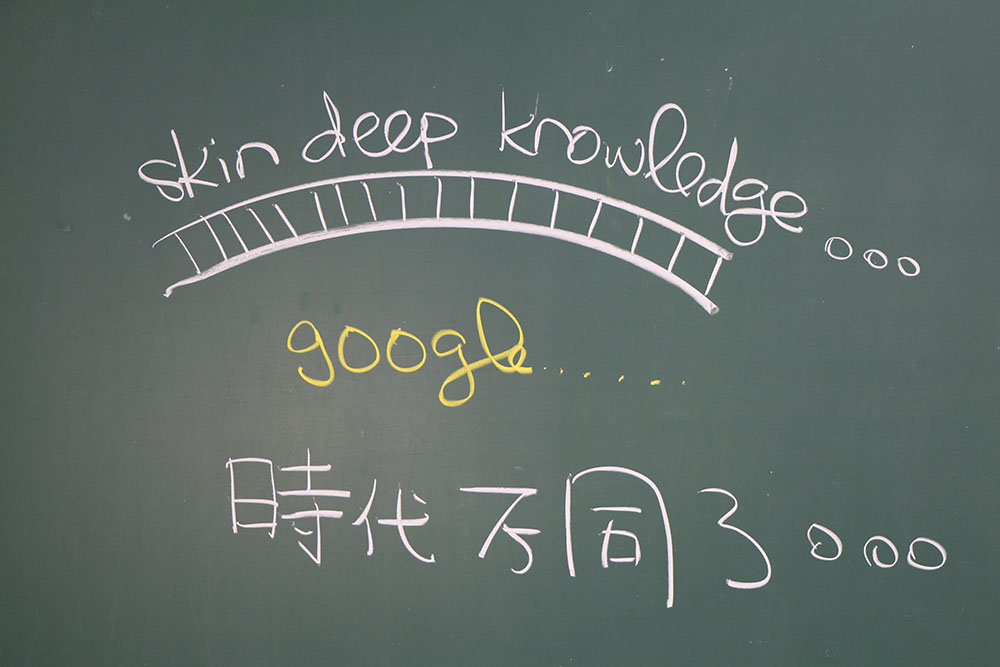 skin deep knowledge...
google......
時代不同了...